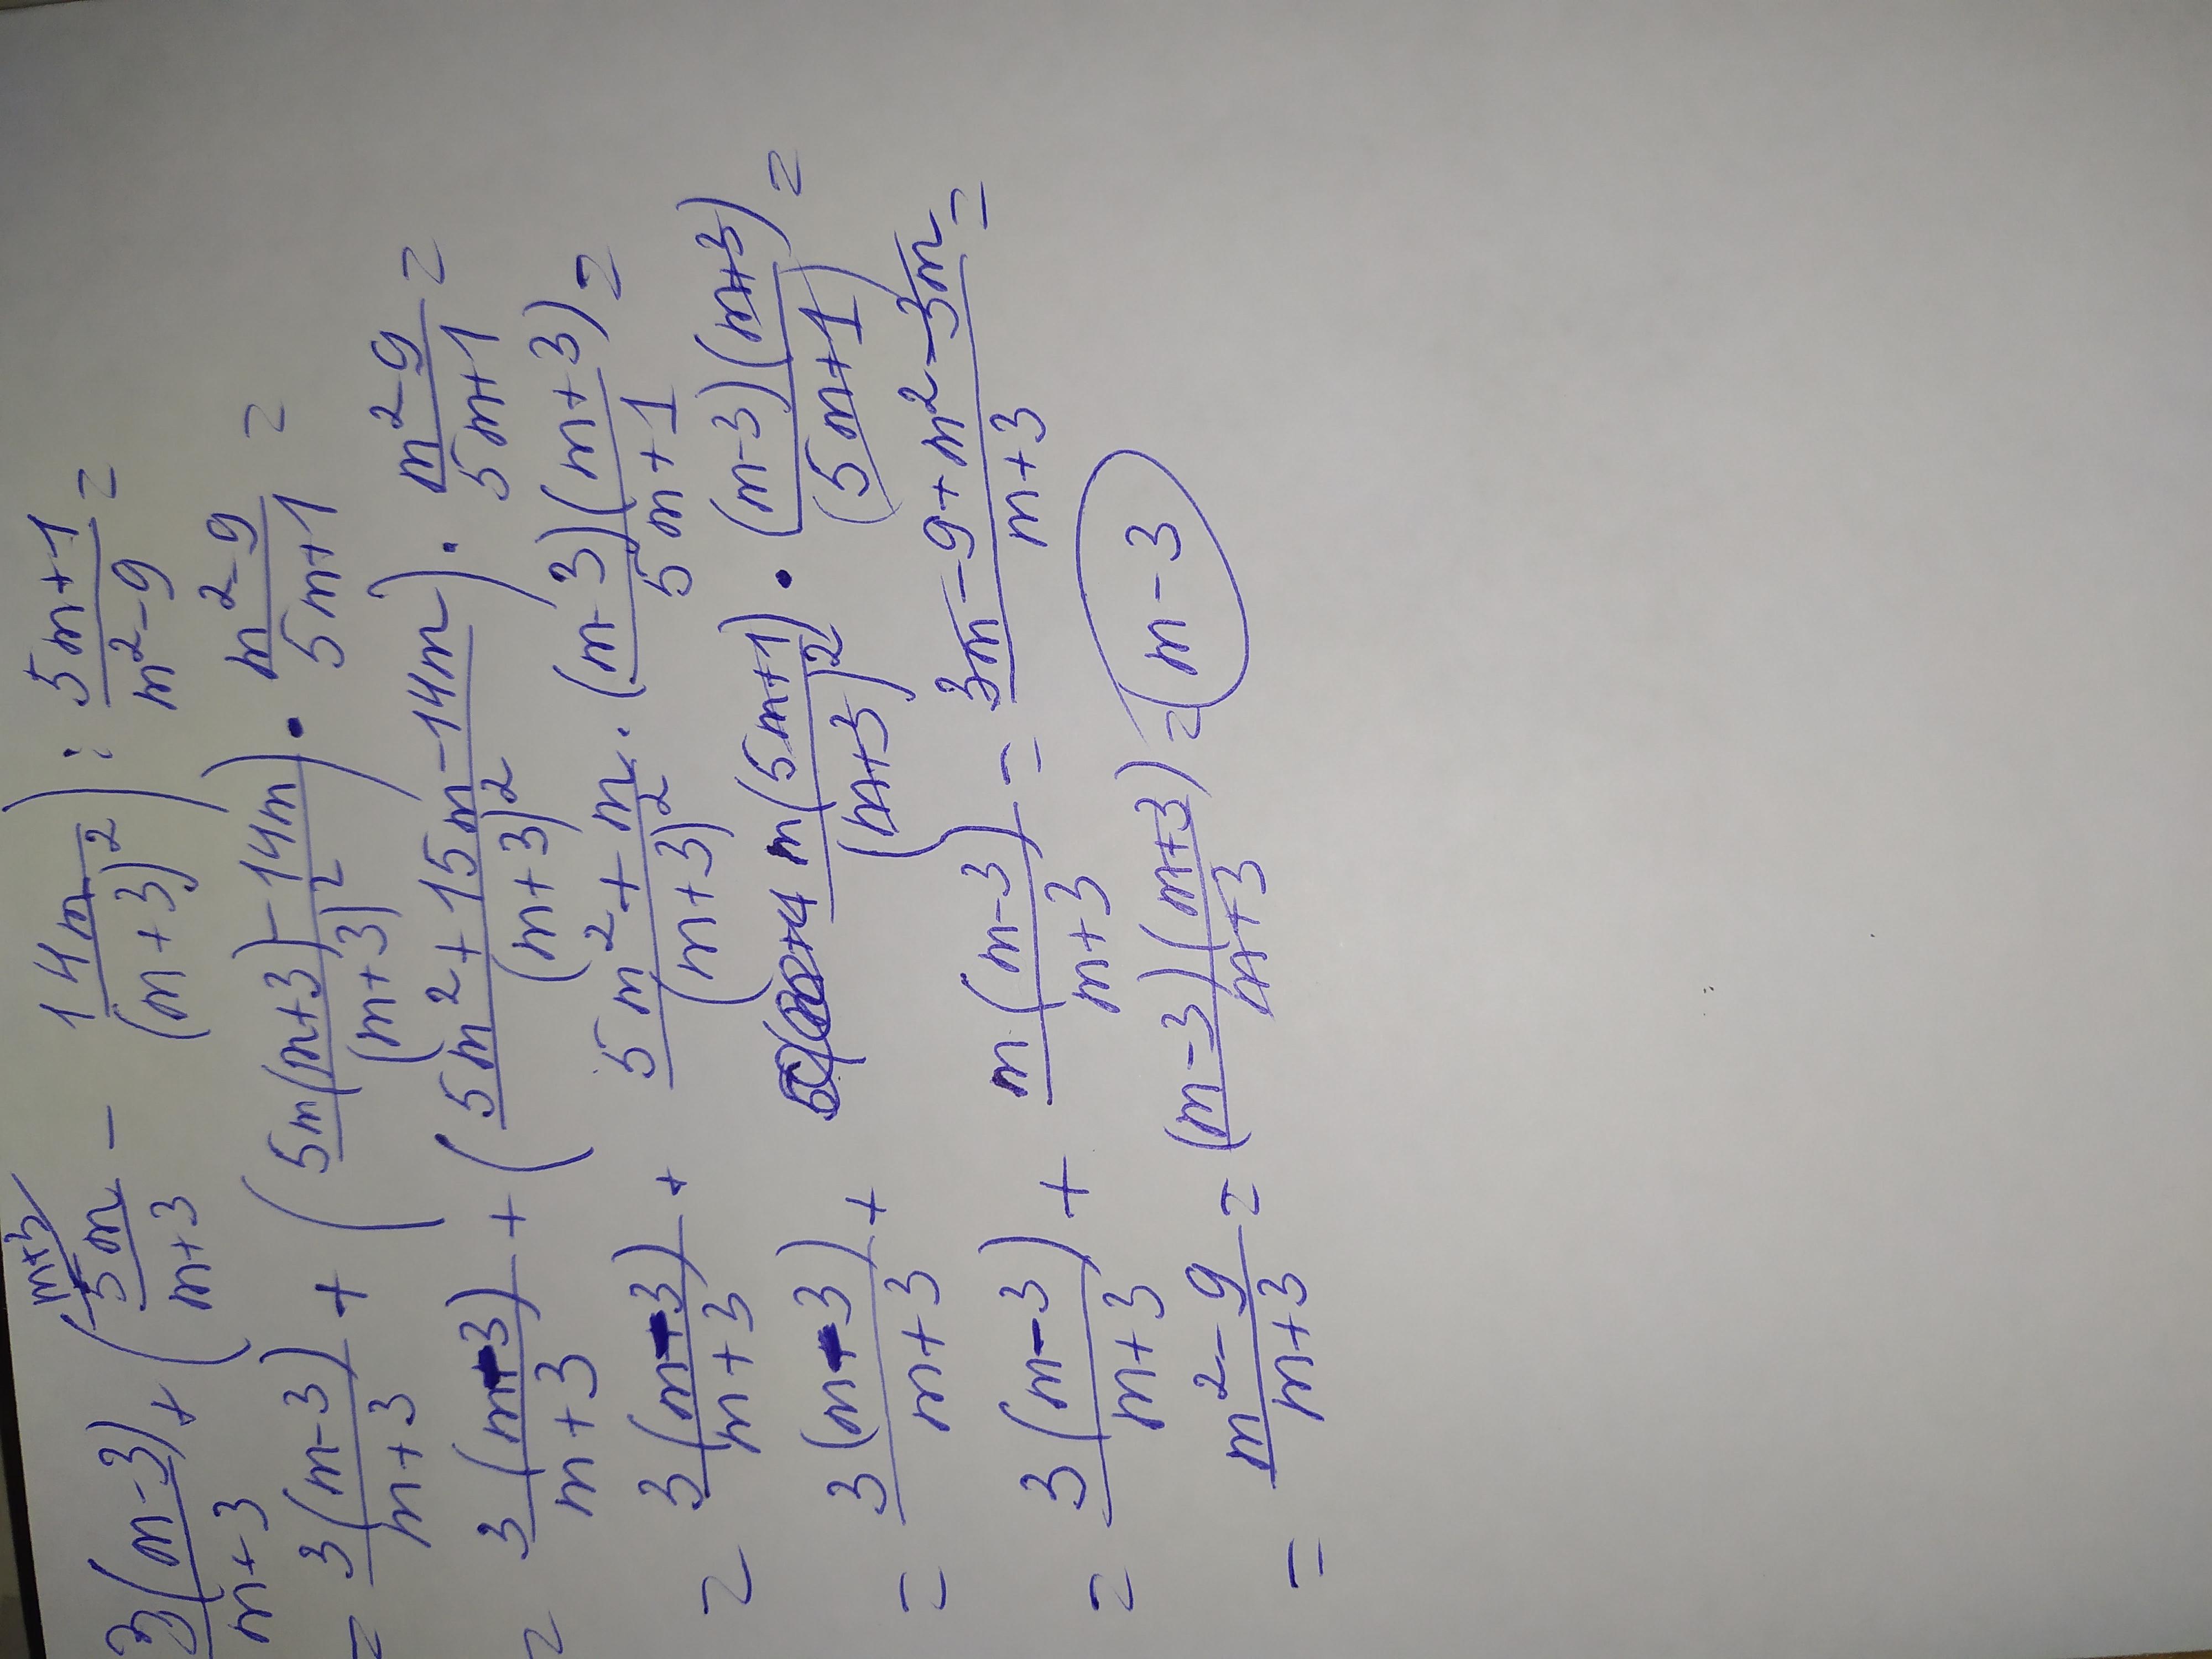 3(m-3)/(m+3) + (5m/(m+3) - 14m/(m+3)²) : (5m+1)/(m²-9) =
= 3(m-3)/(m+3) + ((5m(m+3)-14m)/(m+3)²) · (m²-9)/(5m+1) =
= 3(m-3)/(m+3) + ((5m²+15m-14m)/(m+3)²) · (m²-9)/(5m+1) =
= 3(m-3)/(m+3) + (5m²+m)/(m+3)² · (m-3)(m+3)/(5m+1) =
= 3(m-3)/(m+3) + m(5m+1)/(m+3)² · (m-3)(m+3)/(5m+1) =
= 3(m-3)/(m+3) + m(m-3)/(m+3) = (3m-9+m²-3m)/(m+3) =
= (m²-9)/(m+3) = (m-3)(m+3)/(m+3) = m-3